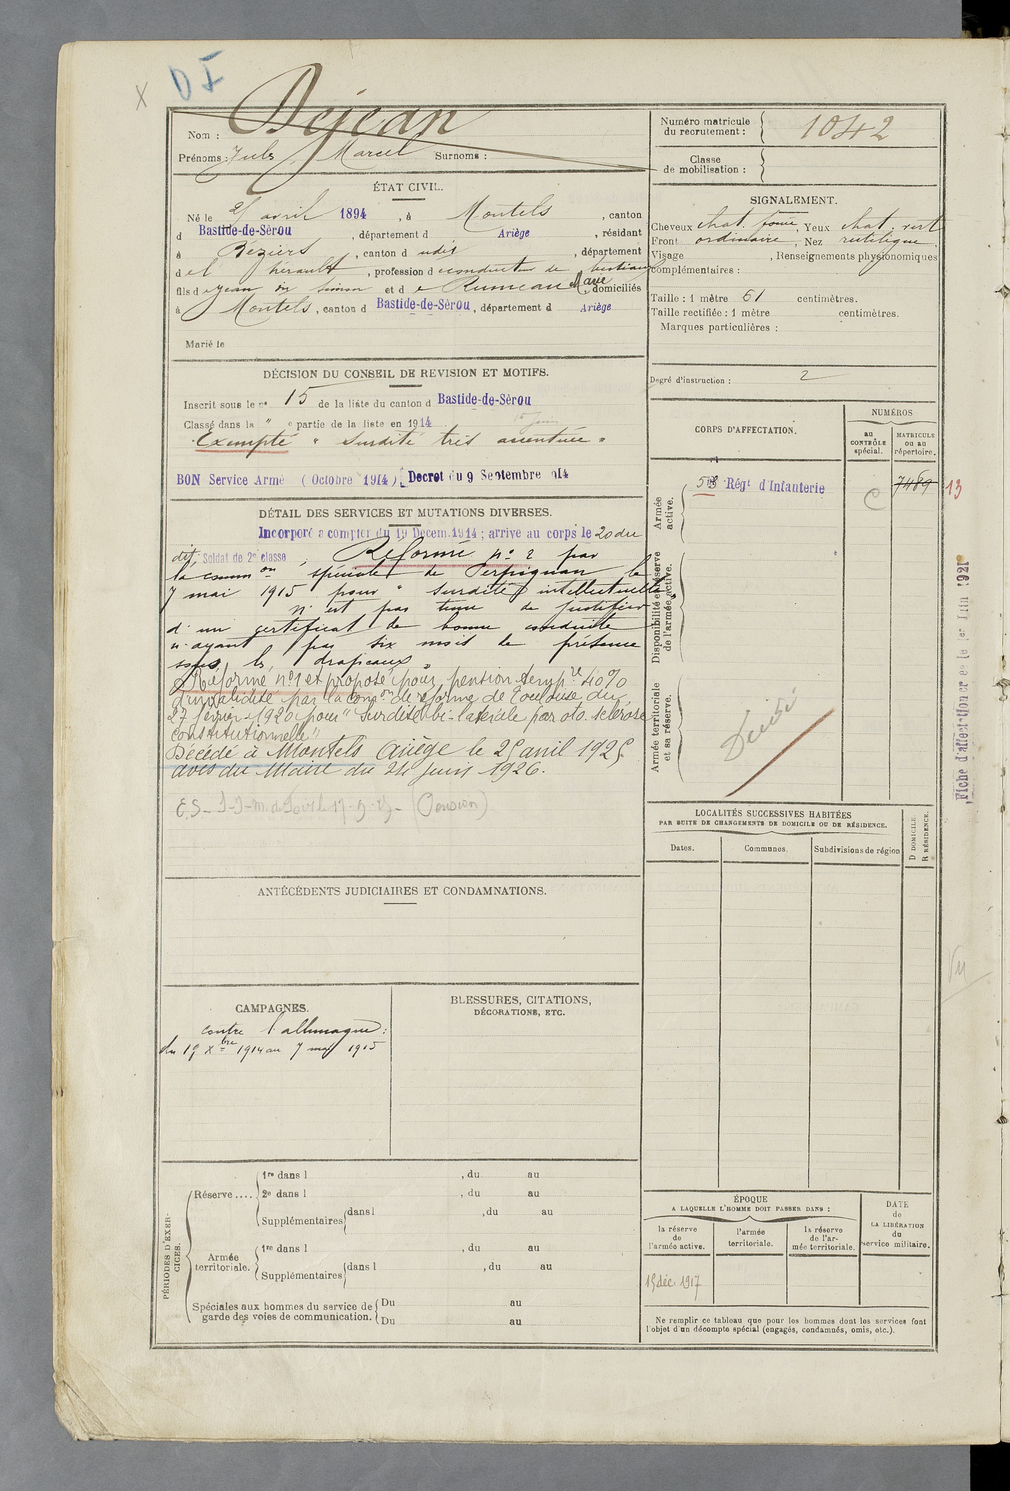 X
D I
Nom : Déjean
Prénoms : Jules Marcel Surnoms :
Numéro matricule du recrutement : 1042
Classe de mobilisation :
ÉTAT CIVIL.
Né le avril 1894, à Montels, canton
d Bastide-de-Sérou, département d Ariège, résidant
à Béziers, canton d udit, département
d el hérault, profession d econducteur de bestiaux
fils d e Jean simon et d e Rumeau Marie domiciliés
à Montels, canton d Bastide-de-Sérou, département d Ariège
Marié le
SIGNALEMENT.
Cheveux chat. foncé, Yeux chat. vert
Front ordinaire, Nez rectiligne,
Visage , Renseignements physionomiques
complémentaires :
Taille : 1 mètre 61 centimètres.
Taille rectifiée : 1 mètre centimètres.
Marques particulières :
Degré d'instruction : 2
DÉCISION DU CONSEIL DE REVISION ET MOTIFS.
Inscrit sous le n° 15 de la liste du canton d Bastide-de-Sérou
Classé dans la " e partie de la liste en 1914
Exempté " surdité très accentuée "
BON Service Armé (Octobre 1914) Decret du 9 Septembre 1914
DÉTAIL DES SERVICES ET MUTATIONS DIVERSES.
Incorporé à compter du 19 Décem. 1914 ; arrivé au corps le 20 du
dit, Soldat de 2e classe ; Réformé n° 2 par
la common spéciale de Perpignan le
7 mai 1915 pour " surdité intellectuelle "
N'est pas tenu de justifier
d'un certificat de bonne conduite
n'ayant pas six mois de présence
sous les drapeaux "
Réformé n°1 et proposé pour pension tempre 40%
d'invalidité par la Comon de réforme de Toulouse du
27 février 1920 pour " surdité bi-latérale par oto-sclérose
constitutionnelle "
Décédé à Montels Ariège le 25 avril 1925
avis du Maire du 24 juin 1926.
(Pension)
CORPS D'AFFECTATION.
NUMÉROS
au CONTRÔLE spécial.
MATRICULE ou au répertoire.
Armée active.
53 Régt d'Infanterie
C
7489
13
Disponibilité et réserve de l'armée active.
Armée territoriale et sa réserve.
Décédé
Fiche d'affectation créée le 1er Juin 1921
LOCALITÉS SUCCESSIVES HABITÉES
PAR SUITE DE CHANGEMENTS DE DOMICILE OU DE RÉSIDENCE.
Dates.
Communes.
Subdivisions de région
D DOMICILE.
R RÉSIDENCE.
ANTÉCÉDENTS JUDICIAIRES ET CONDAMNATIONS.
Vu
CAMPAGNES.
contre l'allemagne :
du 19 Xbre 1914 au 7 mai 1915
BLESSURES, CITATIONS,
DÉCORATIONS, ETC.
PÉRIODES D'EXERCICES.
Réserve....
1re dans l , du au
2e dans l , du au
Supplémentaires dans l , du au
Armée territoriale.
1re dans l , du au
Supplémentaires dans l , du au
Spéciales aux hommes du service de garde des voies de communication.
Du au
Du au
ÉPOQUE
A LAQUELLE L'HOMME DOIT PASSER DANS :
la réserve de l'armée active.
l'armée territoriale.
la réserve de l'armée territoriale.
DATE de LA LIBÉRATION du service militaire.
15 déc. 1917
Ne remplir ce tableau que pour les hommes dont les services font
l'objet d'un décompte spécial (engagés, condamnés, omis, etc.).